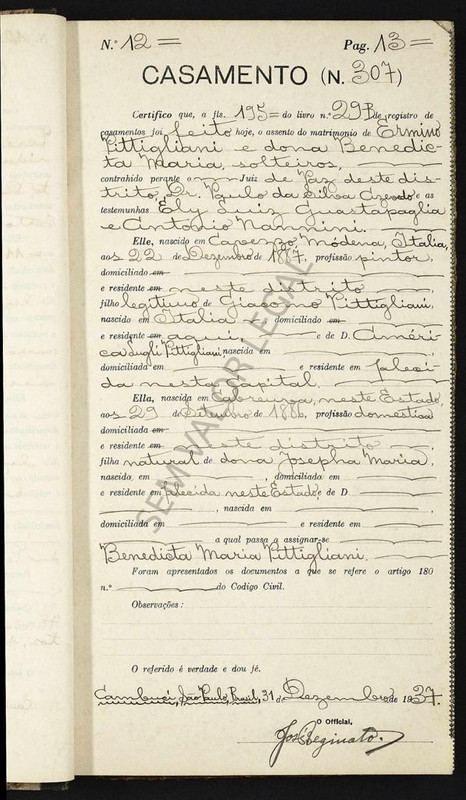 N.º 12 = Pag. 13 =
CASAMENTO (N. 307)
Certifico que, a fls. 195 = do livro n.º 29 B de registro de
casamentos foi feito hoje, o assento do matrimonio de Ermino
Pittigliani e dona Benedic-
ta Maria, solteiros,
contrahido perante o Juiz de Paz deste dis-
trito, Dr. Paulo da Silva Azevedo e as
testemunhas Ely Luiz Guastapaglia
e Antonio Nannini.
Elle, nascido em Capenzo, Módena, Italia,
aos 22 de Dezembro de 1887, profissão pintor,
domiciliado em
e residente em neste distrito
filho legitimo de Giacomo Pittigliani,
nascido em Italia, domiciliado em
e residente em aqui e de D. Améri-
ca Pittigliani, nascida em
domiciliada em e residente em faleci-
da nesta Capital.
Ella, nascida em Cabreuva, neste Estado,
aos 29 de Setembro de 1886, profissão domestica
domiciliada em
e residente em neste distrito
filha natural de dona Josepha Maria,
nascida em , domiciliada em
e residente em falecida neste Estado, e de D.
, nascida em
domiciliada em e residente em
a qual passa a assignar-se
Benedicta Maria Pittigliani.
Foram apresentados os documentos a que se refere o artigo 180
n.º do Codigo Civil.
Observações :
O referido é verdade e dou fé.
Cambuci, São Paulo, Brasil, 31 de Dezembro de 1937.
O Official,
José Reginato.
SEM VALOR LEGAL